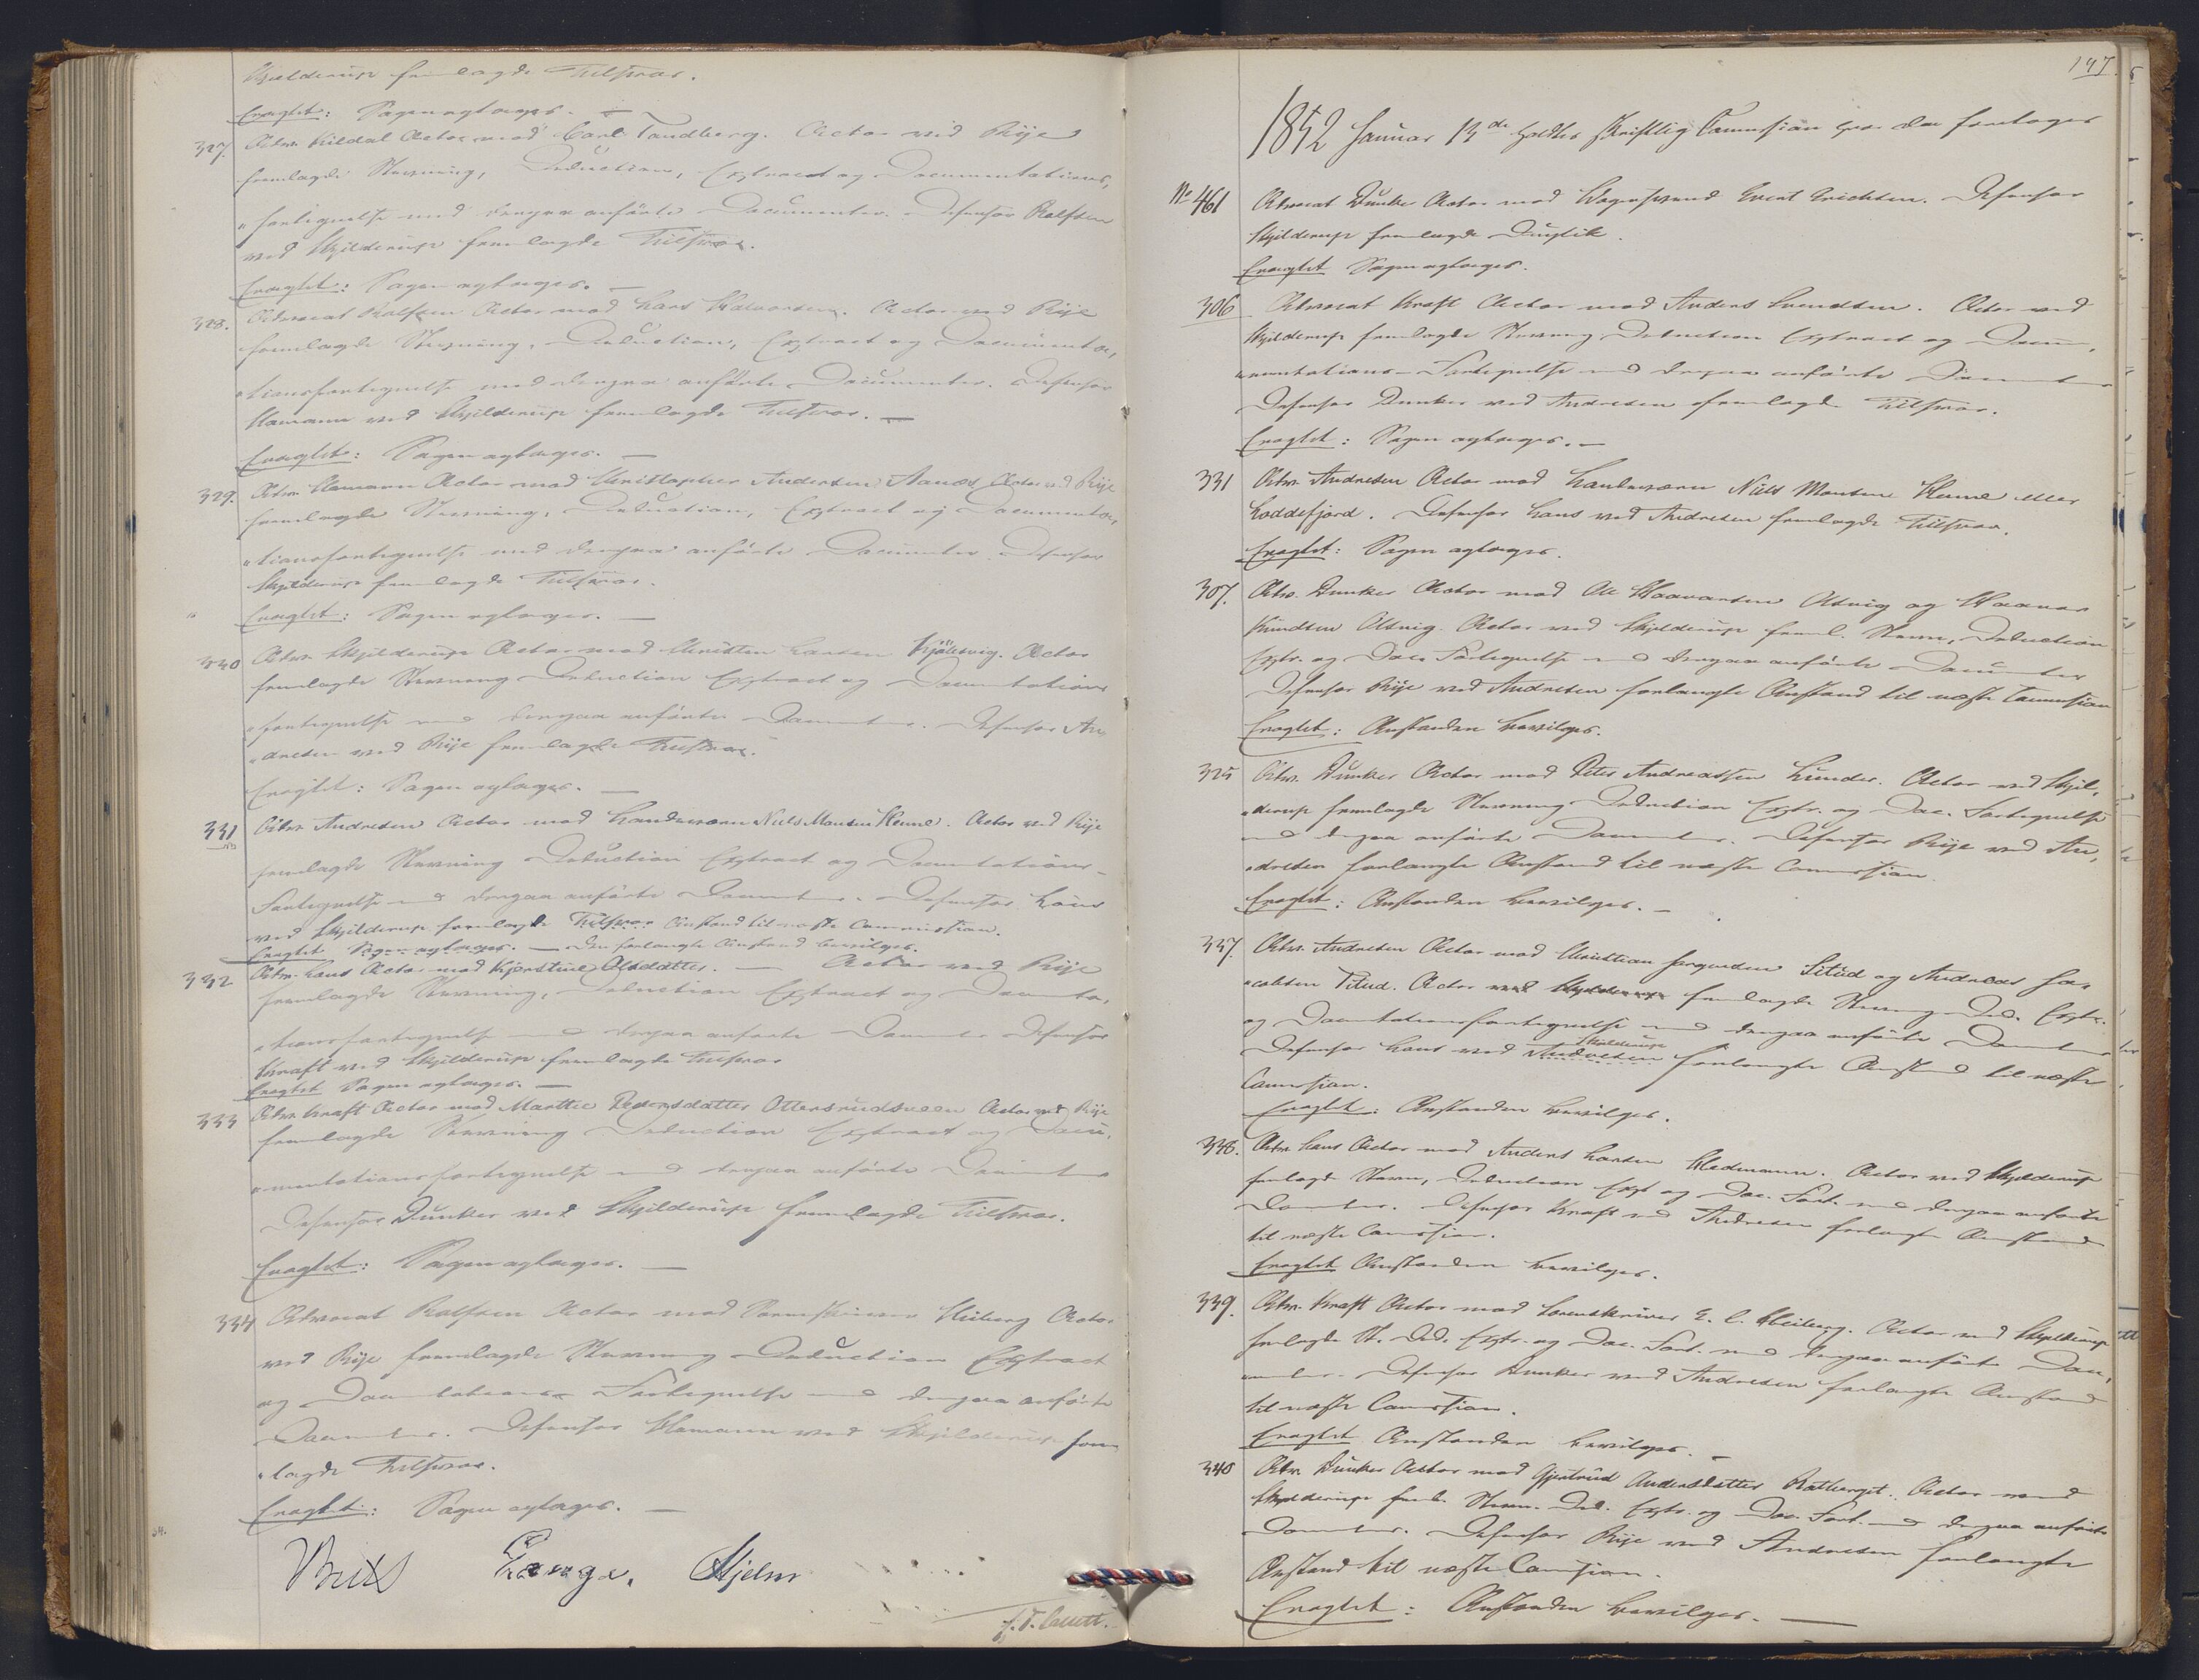 Skjelderup fremlagde Tilsvar.
Eragtet: Sagen optages. —
327. Adv. Kildal Actor mod Carl Tandberg. Actor ved Rÿe
fremlagde Stevning, Deduction, Extract og Documentations„
„fortegnelse med derpaa anførte Documenter. Defensor Rolfsen
ved Skjelderup fremlagde Tilsvar.
Eragtet: Sagen optages. —
328. Advocat Rolfsen Actor mod Lars Halvorsen. Actor ved Rÿe
fremlagde Stevning, Deduction, Extract og Documenta„
„tionsfortegnelse med derpaa anførte Documenter. Defensor
Homann ved Skjelderup fremlagde Tilsvar. —
Eragtet: Sagen optages. —
329. Adv. Homann Actor mod Christopher Andersen Aanæs Actor ved Rÿe
fremlagde Stevning, Deduction, Extract og Documenta„
„tionsfortegnelse med derpaa anførte Documenter. Defensor
Skjelderup fremlagde Tilsvar.
Eragtet: Sagen optages. —
330 Adv. Skjelderup Actor mod Christen Larsen Kjølsvig. Actor
fremlagde Stevning Deduction Extract og Documentations
„fortegnelse med derpaa anførte Documenter. Defensor An
„dresen ved Rÿe fremlagde Tilsvar.
Eragtet: Sagen optages. —
331 Adv. Andresen Actor mod Handelsmann Niels Monsen Henne. Actor ved Rÿe
fremlagde Stevning Deduction Extract og Documentations-
Fortegnelse med derpaa anførte Documenter. Defensor Hans
ved Skjelderup forlangte Tilsvar Anstand til næste Commission.
Eragtet Sagen optages. — Den forlangte Anstand bevilges.
332 Adv. Hans Actor mod Kjerstine Olsdatter. — Actor ved Rÿe
fremlagde Stevning, Deduction Extract og Documenta„
„tionsfortegnelse med derpaa anførte Documenter Defensor
Kraft ved Skjelderup fremlagde Tilsvar
Eragtet Sagen optages. —
333 Adv. Kraft Actor mod Marthe Pedersdatter Ottersrudsveen Actor ved Rÿe
fremlagde Stevning Deduction Extract og Docu„
„mentationsfortegnelse med derpaa anførte Documenter
Defensor Dunker ved Skjelderup fremlagde Tilsvar.
Eragtet: Sagen optages. —
334 Advocat Rolfsen Actor mod Sorenskriver Heiberg Actor
ved Rÿe fremlagde Stevning Deduction Extract
og Documentations Fortegnelse med derpaa anførte
Documenter. Defensor Homann ved Skjelderup frem
„lagde Tilsvar.
Eragtet: Sagen optages. —
Lange. Hjelm
197.
1852 Januar 13de holdtes skriftlig Commission hvor da foretoges
No 461 Advocat Dunker Actor mod Evert Erichsen. Defensor
Skjelderup fremlagde Duplik.
Eragtet Sagen optages.
306 Advocat Kraft Actor mod Anders Svendsen. Actor ved
Skjelderup fremlagde Stevning Deduction Extract og Docu„
„mentations-Fortegnelse med derpaa anførte Documenter
Defensor Dunker ved Andresen fremlagde Tilsvar.
Eragtet: Sagen optages. —
331 Adv. Andresen Actor mod Handelsmann Niels Monsen Henne eller
Loddefjord. Defensor Hans ved Andresen fremlagde Tilsvar.
Eragtet: Sagen optages.
307. Adv. Dunker Actor mod Ole Haavorsen Altvig og Haavor
Knudsen Altvig. Actor ved Skjelderup freml. Stevn, Deduction
Extr. og Doc. Fortegnelse med derpaa anførte Documenter
Defensor Rÿe ved Andresen forlangte Anstand til næste Commission
Eragtet: Anstanden bevilges.
325 Adv. Dunker Actor mod Peter Andreassen Hunder. Actor ved Skjel„
„derup fremlagde Stevning Deduction Extr. og Doc. Fortegnelse
med derpaa anførte Documenter. Defensor Rÿe ved An„
„dresen forlangte Anstand til næste Commission
Eragtet: Anstanden bevilges. —
337. Adv. Andresen Actor mod Christian Jørgensen Situd og Andreas Ja„
„cobsen Situd. Actor ved Skjelderup fremlagde Stevning Ded. Extr.
og Documentationsfortegnelse med derpaa anførte Documenter
Defensor Hans ved Andresen Skjelderup forlangte Anstand til næste
Commission.
Eragtet: Anstanden bevilges.
338. Adv. Hans Actor mod Anders Larsen Hedemann. Actor ved Skjelderup
fremlagde Stevn, Deduction Ext og Doc. Fort. med derpaa anførte
Documenter. Defensor Kraft ved Andresen forlangte Anstand
til næste Commission.
Eragtet Anstanden bevilges.
339. Adv. Kraft Actor mod Sorenskriver E. C. Heiberg. Actor ved Skjelderup
fremlagde St. Ded. Extr. og Doc. Fort. med derpaa anførte Docu„
„menter. Defensor Dunker ved Andresen forlangte Anstand
til næste Commission.
Eragtet Anstanden bevilges. —
340 Adv. Dunker Actor mod Gjertrud Andersdatter Rotberget. Actor ved
Skjelderup freml. Stevn. Ded. Extr. og Doc. Fort. med derpaa anførte
Documenter. Defensor Rÿe ved Andresen forlangte
Anstand til næste Commission.
Eragtet: Anstanden bevilges. —